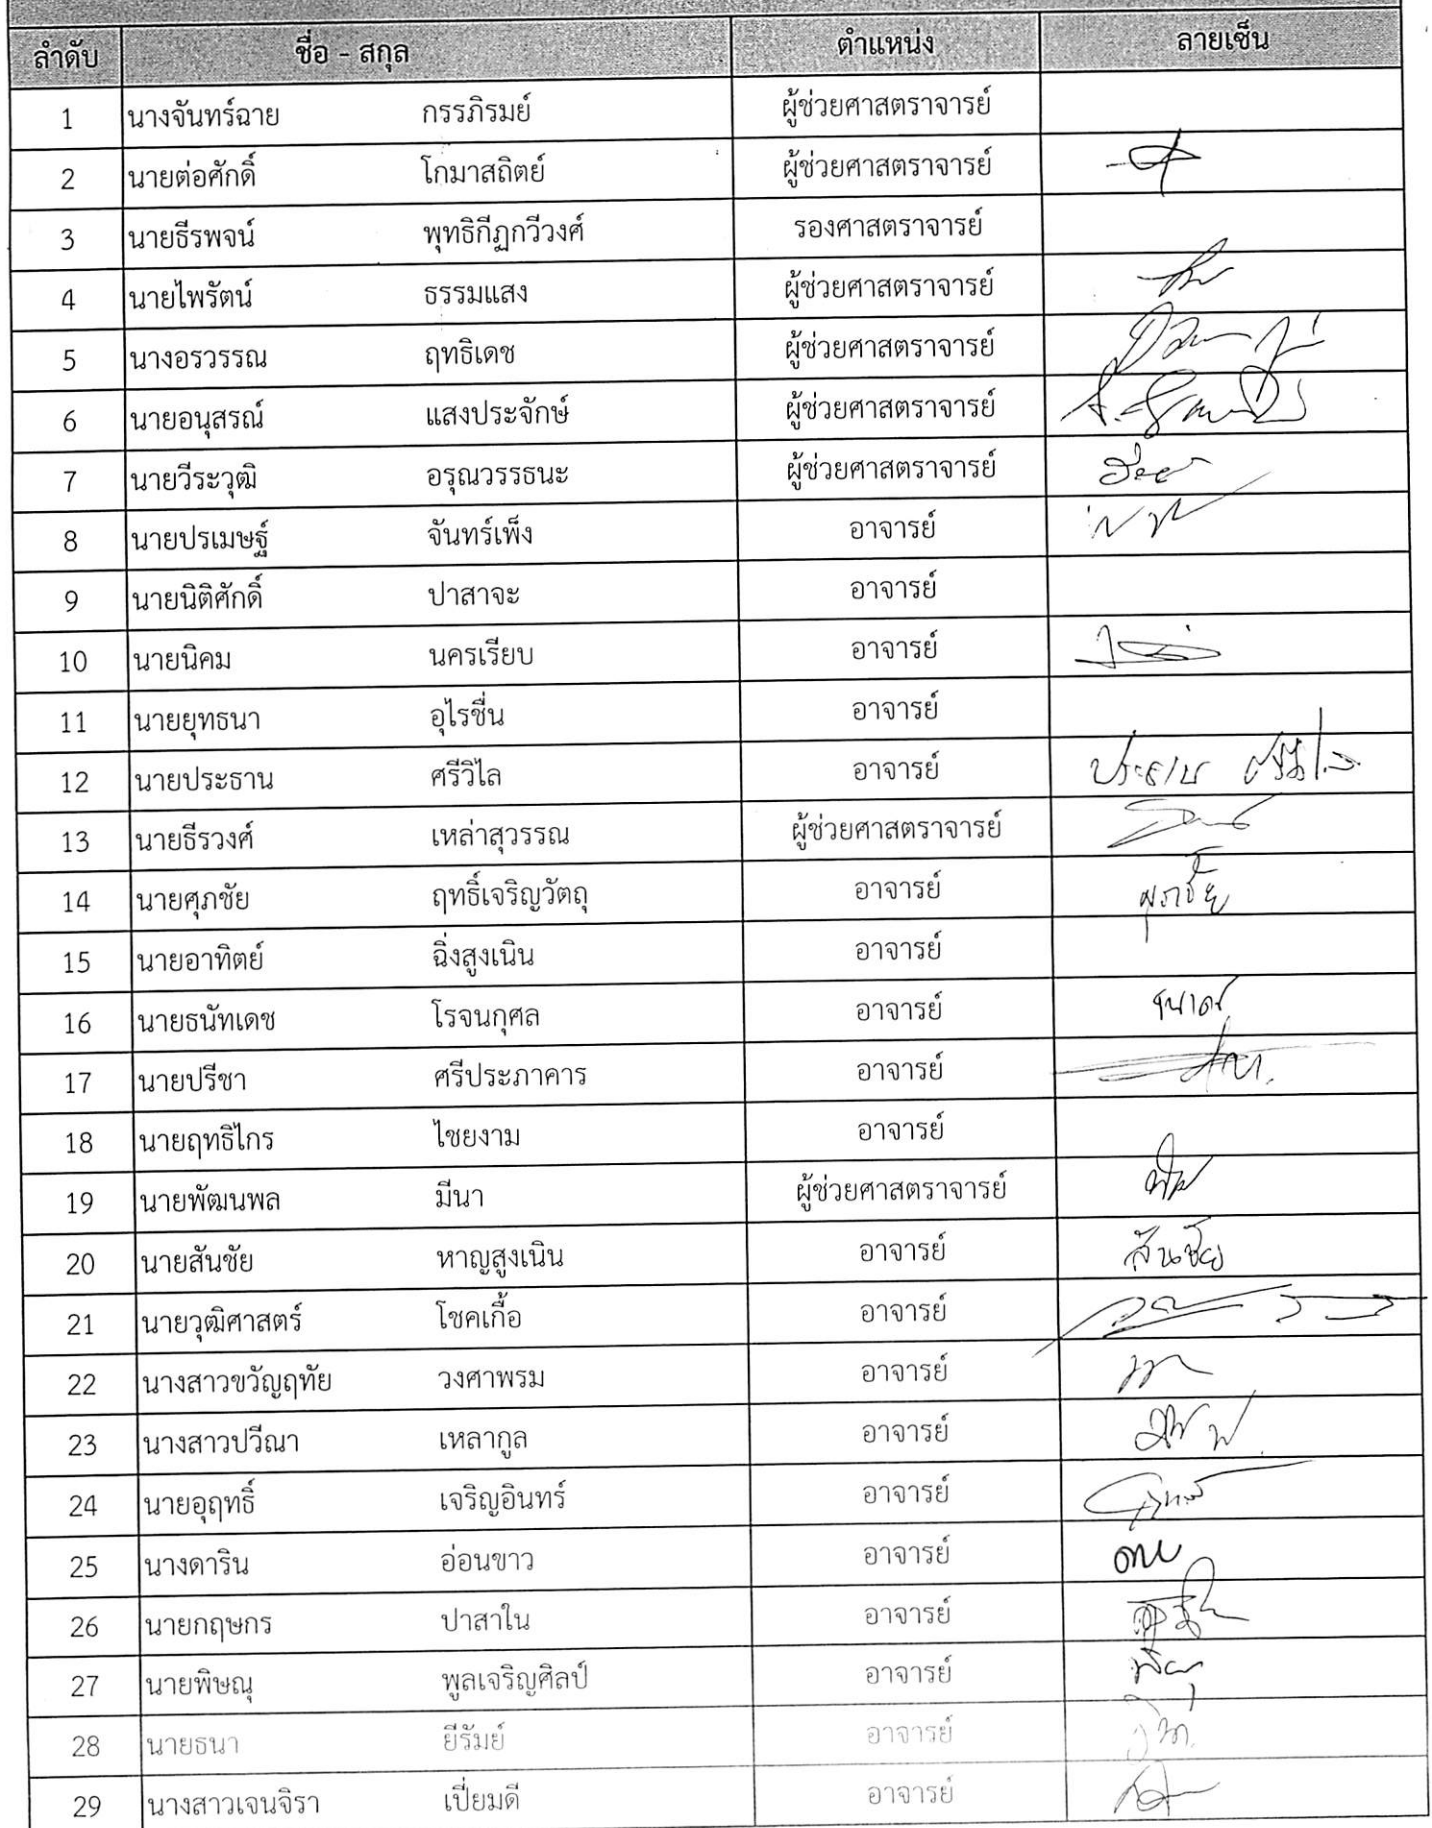 ลำดับ ชื่อ - สกุล ตำแหน่ง ลายเซ็น
1 นางจันทร์ฉาย กรรภิรมย์ ผู้ช่วยศาสตราจารย์
2 นายต่อศักดิ์ โกมาสถิตย์ ผู้ช่วยศาสตราจารย์
3 นายธีรพจน์ พุทธิกีฏกวีวงศ์ รองศาสตราจารย์
4 นายไพรัตน์ ธรรมแสง ผู้ช่วยศาสตราจารย์
5 นางอรวรรณ ฤทธิเดช ผู้ช่วยศาสตราจารย์
6 นายอนุสรณ์ แสงประจักษ์ ผู้ช่วยศาสตราจารย์
7 นายวีระวุฒิ อรุณวรรธนะ ผู้ช่วยศาสตราจารย์
8 นายปรเมษฐ์ จันทร์เพ็ง อาจารย์
9 นายนิติศักดิ์ ปาสาจะ อาจารย์
10 นายนิคม นครเรียบ อาจารย์
11 นายยุทธนา อุไรชื่น อาจารย์
12 นายประธาน ศรีวิไล อาจารย์ ประธาน ศรีวิไล
13 นายธีรวงศ์ เหล่าสุวรรณ ผู้ช่วยศาสตราจารย์
14 นายศุภชัย ฤทธิ์เจริญวัตถุ อาจารย์ ศุภชัย
15 นายอาทิตย์ ฉิ่งสูงเนิน อาจารย์
16 นายธนัทเดช โรจนกุศล อาจารย์
17 นายปรีชา ศรีประภาคาร อาจารย์
18 นายฤทธิไกร ไชยงาม อาจารย์
19 นายพัฒนพล มีนา ผู้ช่วยศาสตราจารย์
20 นายสันชัย หาญสูงเนิน อาจารย์ สันชัย
21 นายวุฒิศาสตร์ โชคเกื้อ อาจารย์
22 นางสาวขวัญฤทัย วงศาพรม อาจารย์
23 นางสาวปวีณา เหลากูล อาจารย์
24 นายอุฤทธิ์ เจริญอินทร์ อาจารย์
25 นางดาริน อ่อนขาว อาจารย์
26 นายกฤษกร ปาสาใน อาจารย์
27 นายพิษณุ พูลเจริญศิลป์ อาจารย์
28 นายธนา ยีรัมย์ อาจารย์
29 นางสาวเจนจิรา เปี่ยมดี อาจารย์